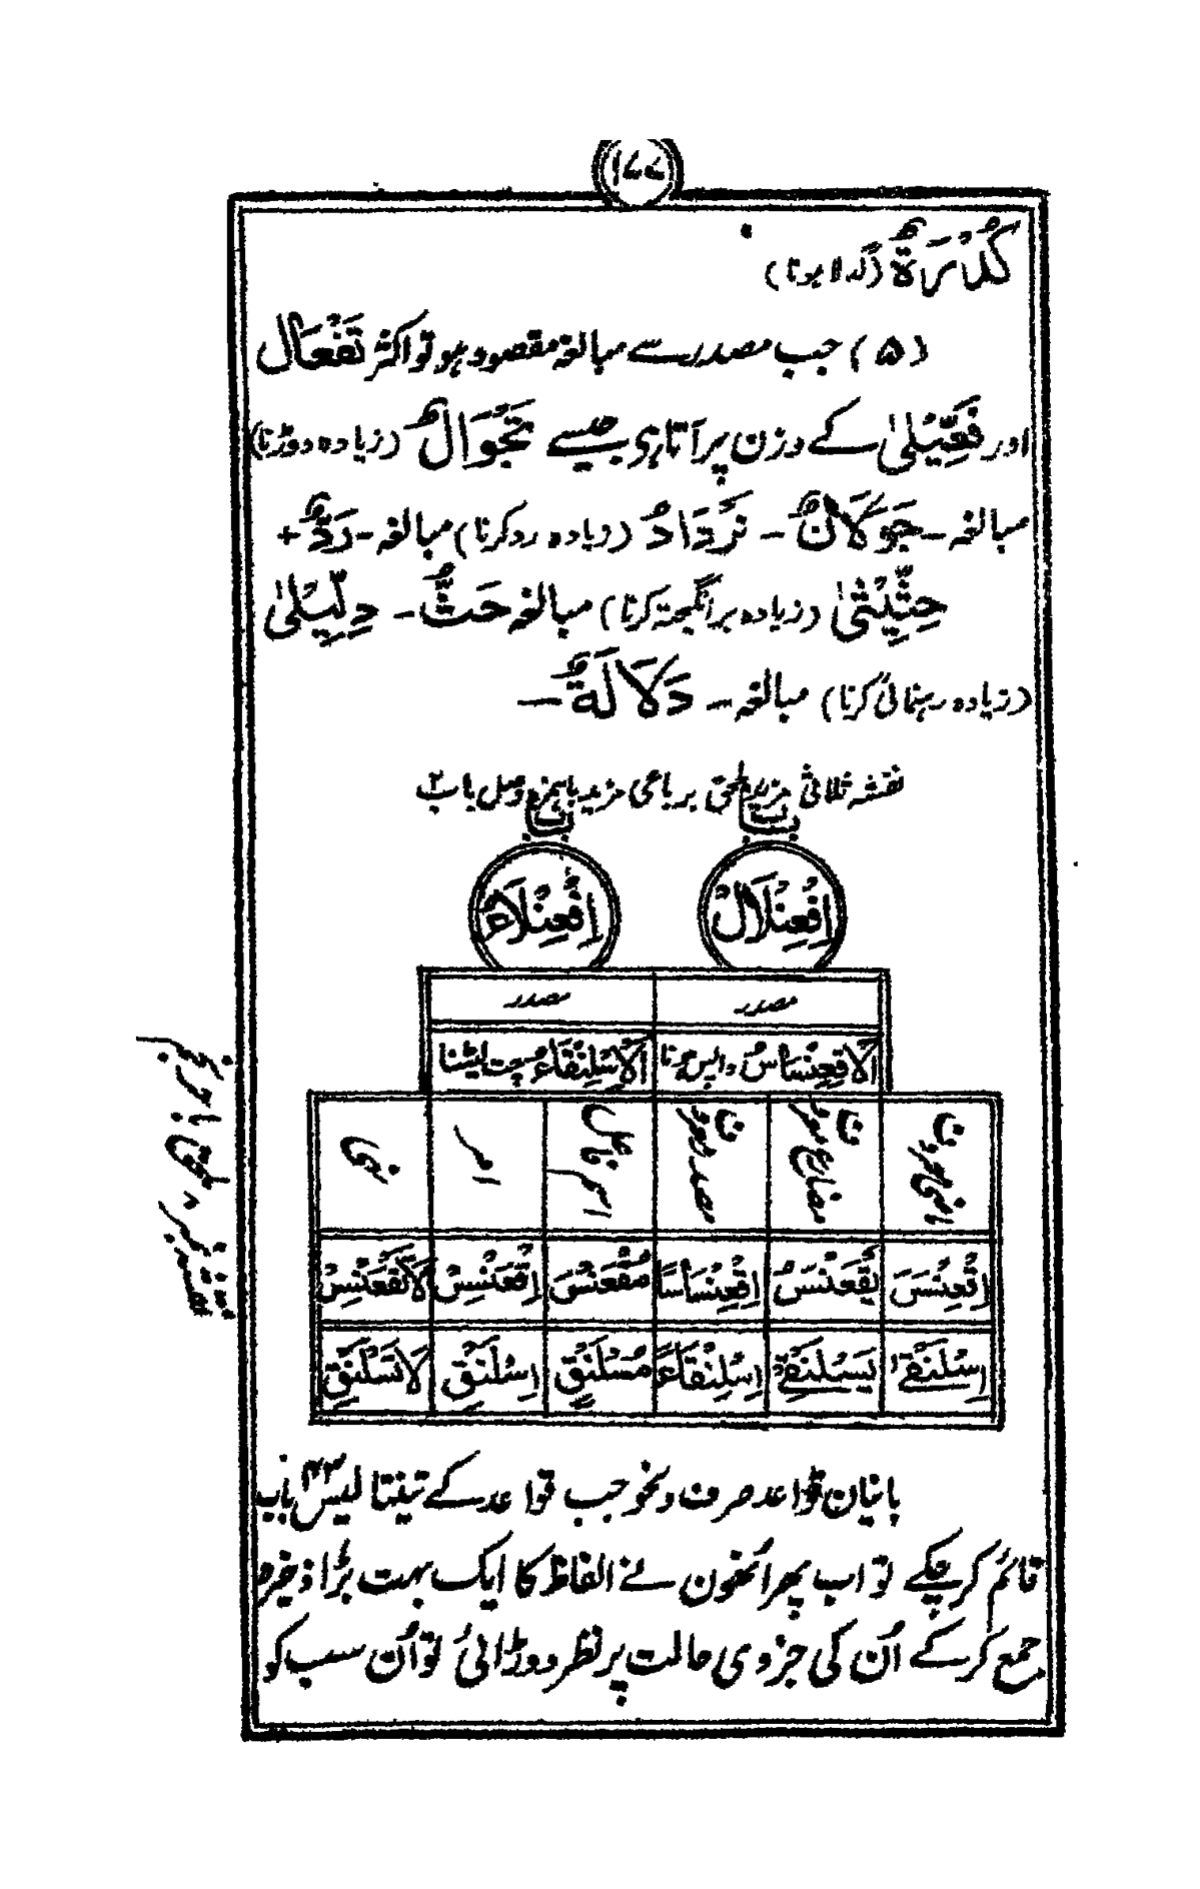 ۱۷۷
كُدْرَةٌ (گدلا ہونا)
(۵) جب مصدر سے مبالغہ مقصود ہو تو اکثر تَفْعَال
اور فِعِّيْلٰى کے وزن پر آتا ہی جیسے تَجْوَالٌ (زیادہ دوڑنا)
مبالغہ - جَوَلَانٌ - تَرْدَادٌ (زیادہ رد کرنا) مبالغہ - رَدٌّ +
حِثِّيْثٰى (زیادہ برانگیختہ کرنا) مبالغہ حَثٌّ - دِلِّيْلٰى
(زیادہ رہنمائی کرنا) مبالغہ - دَلَالَةٌ -
نقشہ ثلاثی مزید ملحق برباعی مزید باہمزہ وصل باب ۲
باب باب
اِفْعِنْلَالٌ اِفْعِنْلَاءٌ
مصدر مصدر
الاقعنساسُ واپس ہونا الاسلنقاءُ چت لیٹنا
ماضی معروف مضارع معروف مصدر معروف اسم فاعل امر نہی
اِقْعَنْسَسَ يَقْعَنْسِسُ اِقْعِنْسَاسًا مُقْعَنْسِسٌ اِقْعَنْسِسْ لَا تَقْعَنْسِسْ
اِسْلَنْقٰى يَسْلَنْقِىْ اِسْلِنْقَاءً مُسْلَنْقٍ اِسْلَنْقِ لَا تَسْلَنْقِ
بانیان قواعد صرف و نحو جب قواعد کے تینتالیس ۴۳ باب
قائم کر چکے تو اب پھر اُنھون نے الفاظ کا ایک بہت بڑا ذخیرہ
جمع کر کے اُن کی جزوی حالت پر نظر دوڑائی تو اُن سب کو